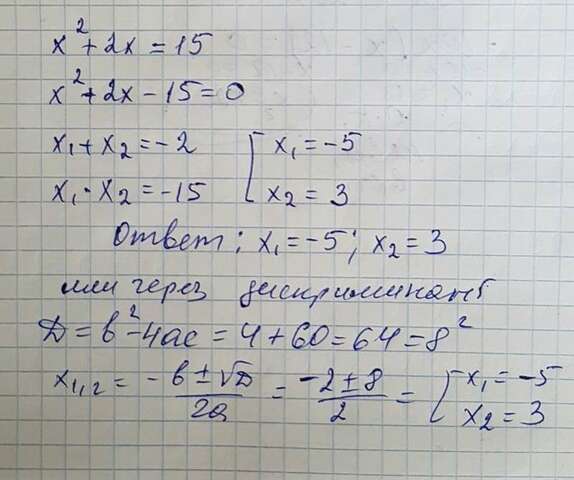 x² + 2x = 15
x² + 2x - 15 = 0
x₁ + x₂ = -2 [ x₁ = -5
x₁ · x₂ = -15 x₂ = 3
Ответ: x₁ = -5; x₂ = 3
или через дискриминант
D = b² - 4ac = 4 + 60 = 64 = 8²
x₁,₂ = (-b ± √D)/2a = (-2 ± 8)/2 = [ x₁ = -5
x₂ = 3